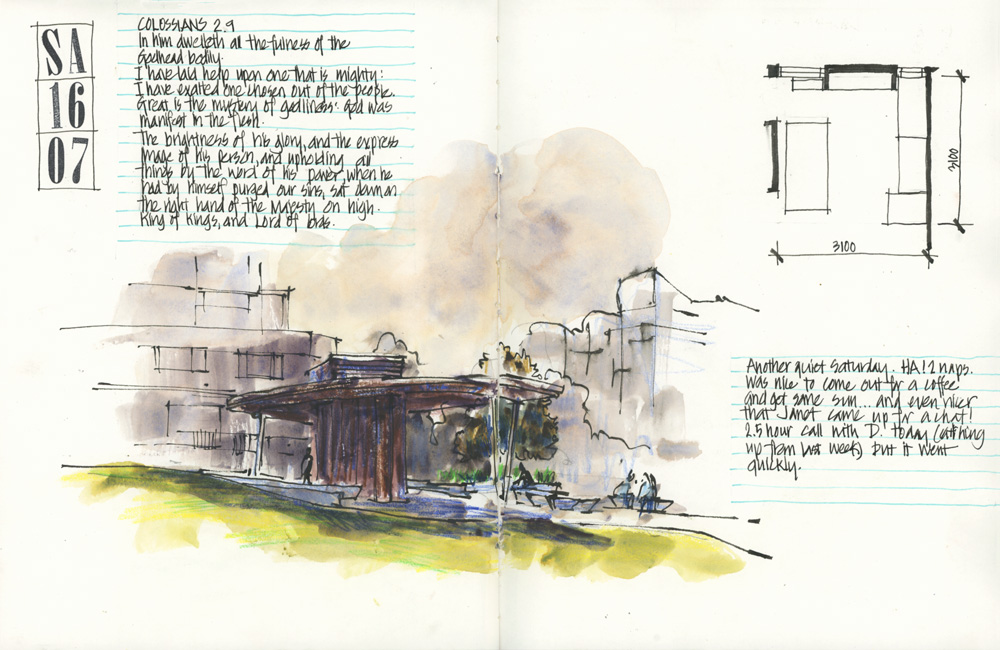 SA
16
07
COLOSSIANS 2.9
In him dwelleth all the fulness of the
Godhead bodily.
I have laid help upon one that is mighty:
I have exalted one chosen out of the people.
Great is the mystery of godliness: God was
manifest in the flesh.
The brightness of his glory, and the express
image of his person, and upholding all
things by the word of his power, when he
had by himself purged our sins, sat down on
the right hand of the Majesty on high.
King of kings, and Lord of lords.
3100
3100
Another quiet Saturday. HA! 2 naps.
Was nice to come out for a coffee
and get some sun... and even nicer
that Janet came up for a chat!
2.5 hour call with D. today (catching
up from last week) but it went
quickly.